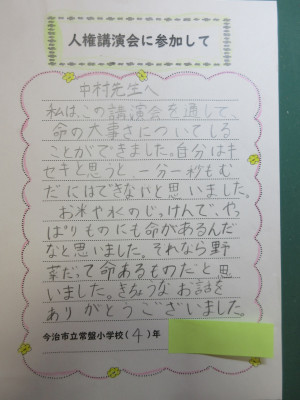 人権講演会に参加して
中村先生へ
私は、この講演会を通して、
命の大事さについてしる
ことができました。自分はキ
セキと思うと、一分一秒もむ
だにはできないと思いました。
お米や水のじっけんで、やっ
ぱりものにも命があるんだ
なと思いました。それなら野
菜だって命あるものだと思
いました。きちょうなお話を
ありがとうございました。
今治市立常盤小学校(4)年